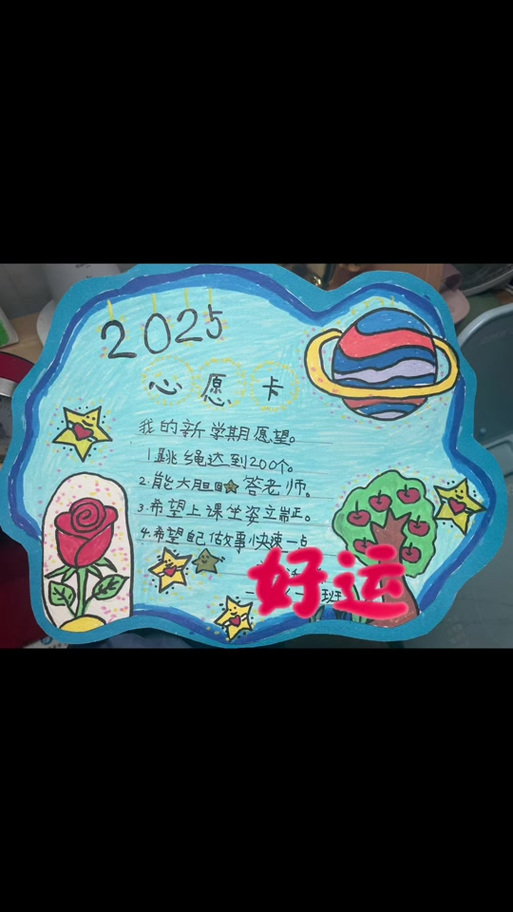 2025
心愿卡
我的新学期愿望。
1.跳绳达到200个。
2.能大胆回答老师。
3.希望上课坐姿立耑正。
4.希望自己做故事快速一点
好运
班